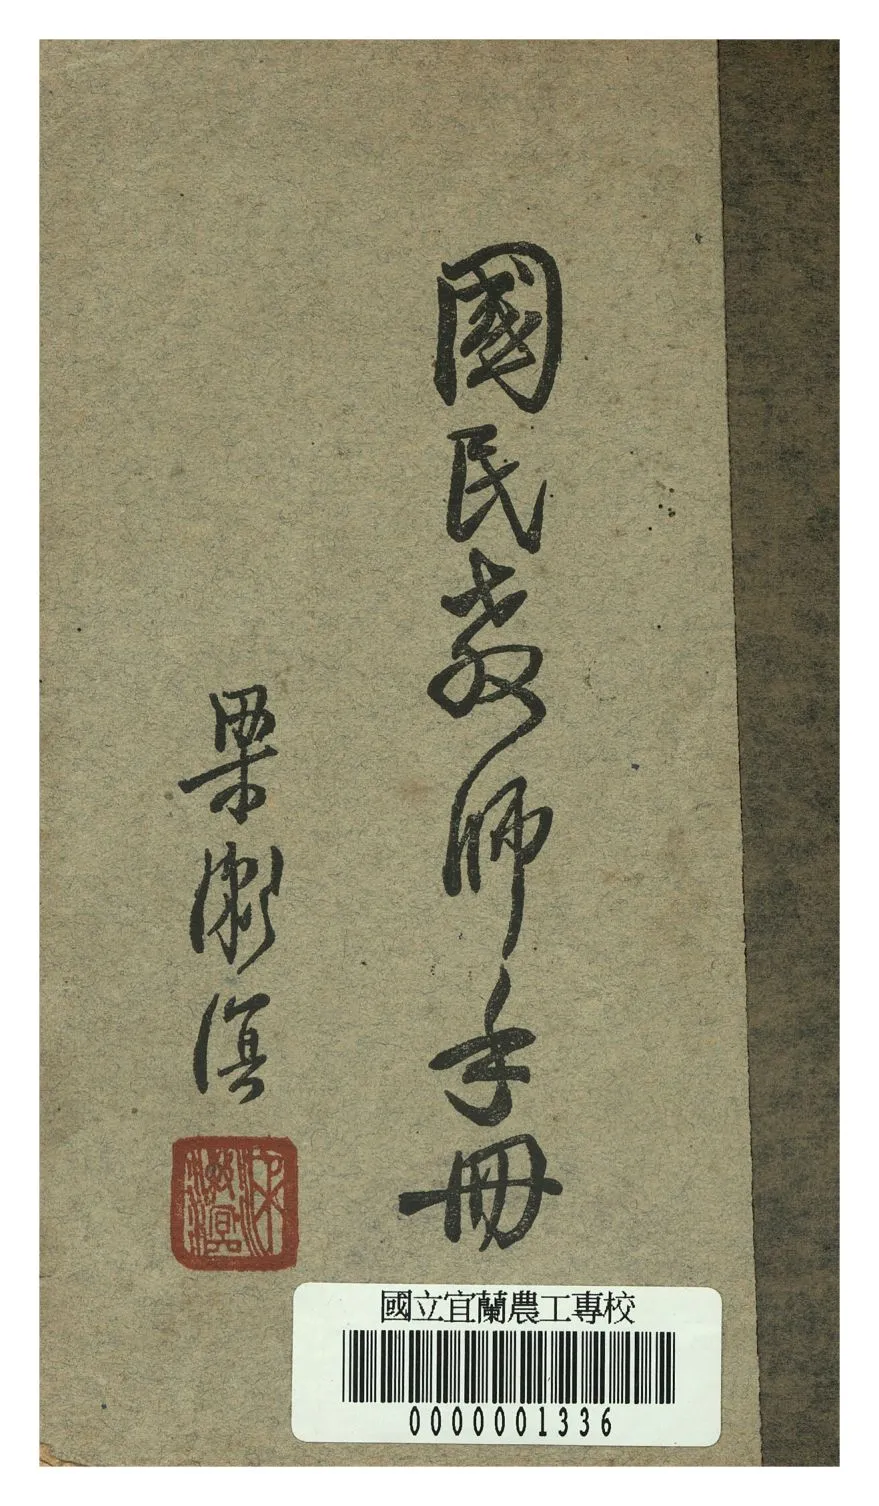 國民教師手冊
梁漱溟
梁漱溟
國立宜蘭農工專校
0000001336